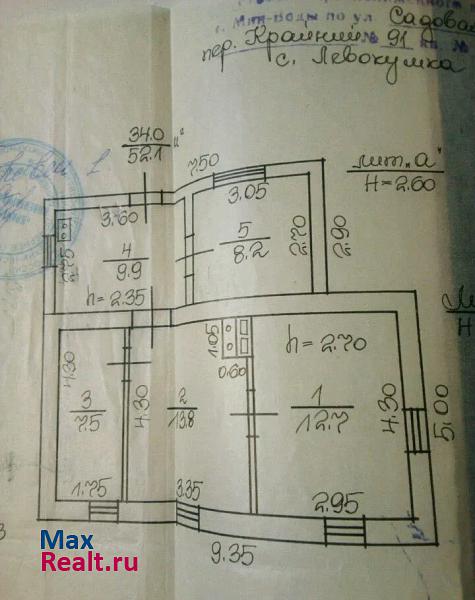 г. Мин-Воды по ул. Садовая
пер. Крайний № 91 кв. №
с. Левокумка
34.0
52.1
7.50
лит. "а"
H=2.60
3.60
3.05
4
9.9
2.75
h=2.35
5
8.2
2.70
2.90
1.05
0.60
h=2.70
4.30
3
7.5
1.75
4.30
2
13.8
3.35
1
12.7
4.30
5.00
2.95
9.35
Max
Realt.ru